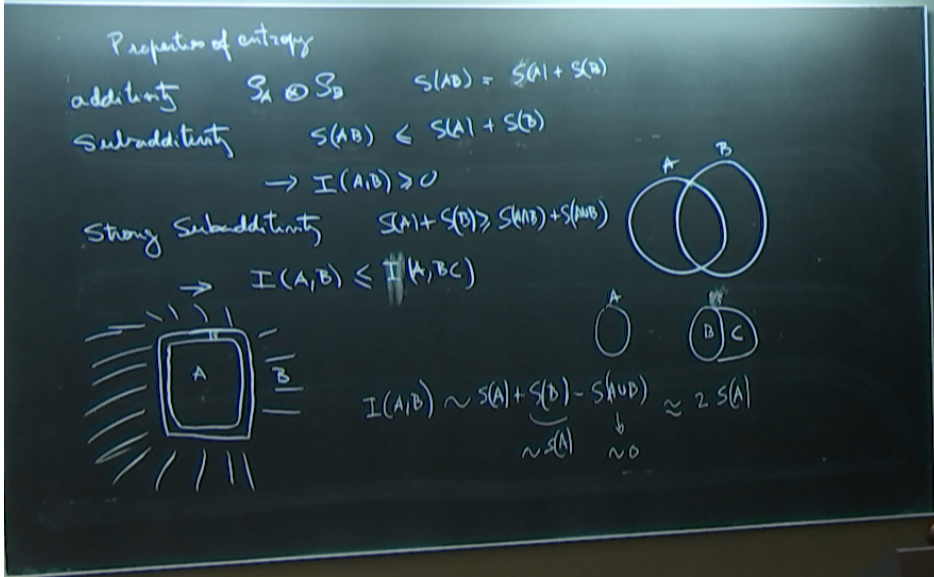 Properties of entropy
additivity ρ_A ⊗ ρ_B S(AB) = S(A) + S(B)
Subadditivity S(AB) ≤ S(A) + S(B)
→ I(A,B) ≥ 0
Strong Subadditivity S(A) + S(B) ≥ S(A∩B) + S(A∪B)
→ I(A,B) ≤ I(A,BC)
A B
A
B C
A
B
I(A,B) ~ S(A) + S(B) - S(A∪B) ≈ 2 S(A)
~S(A) ↓ ~0